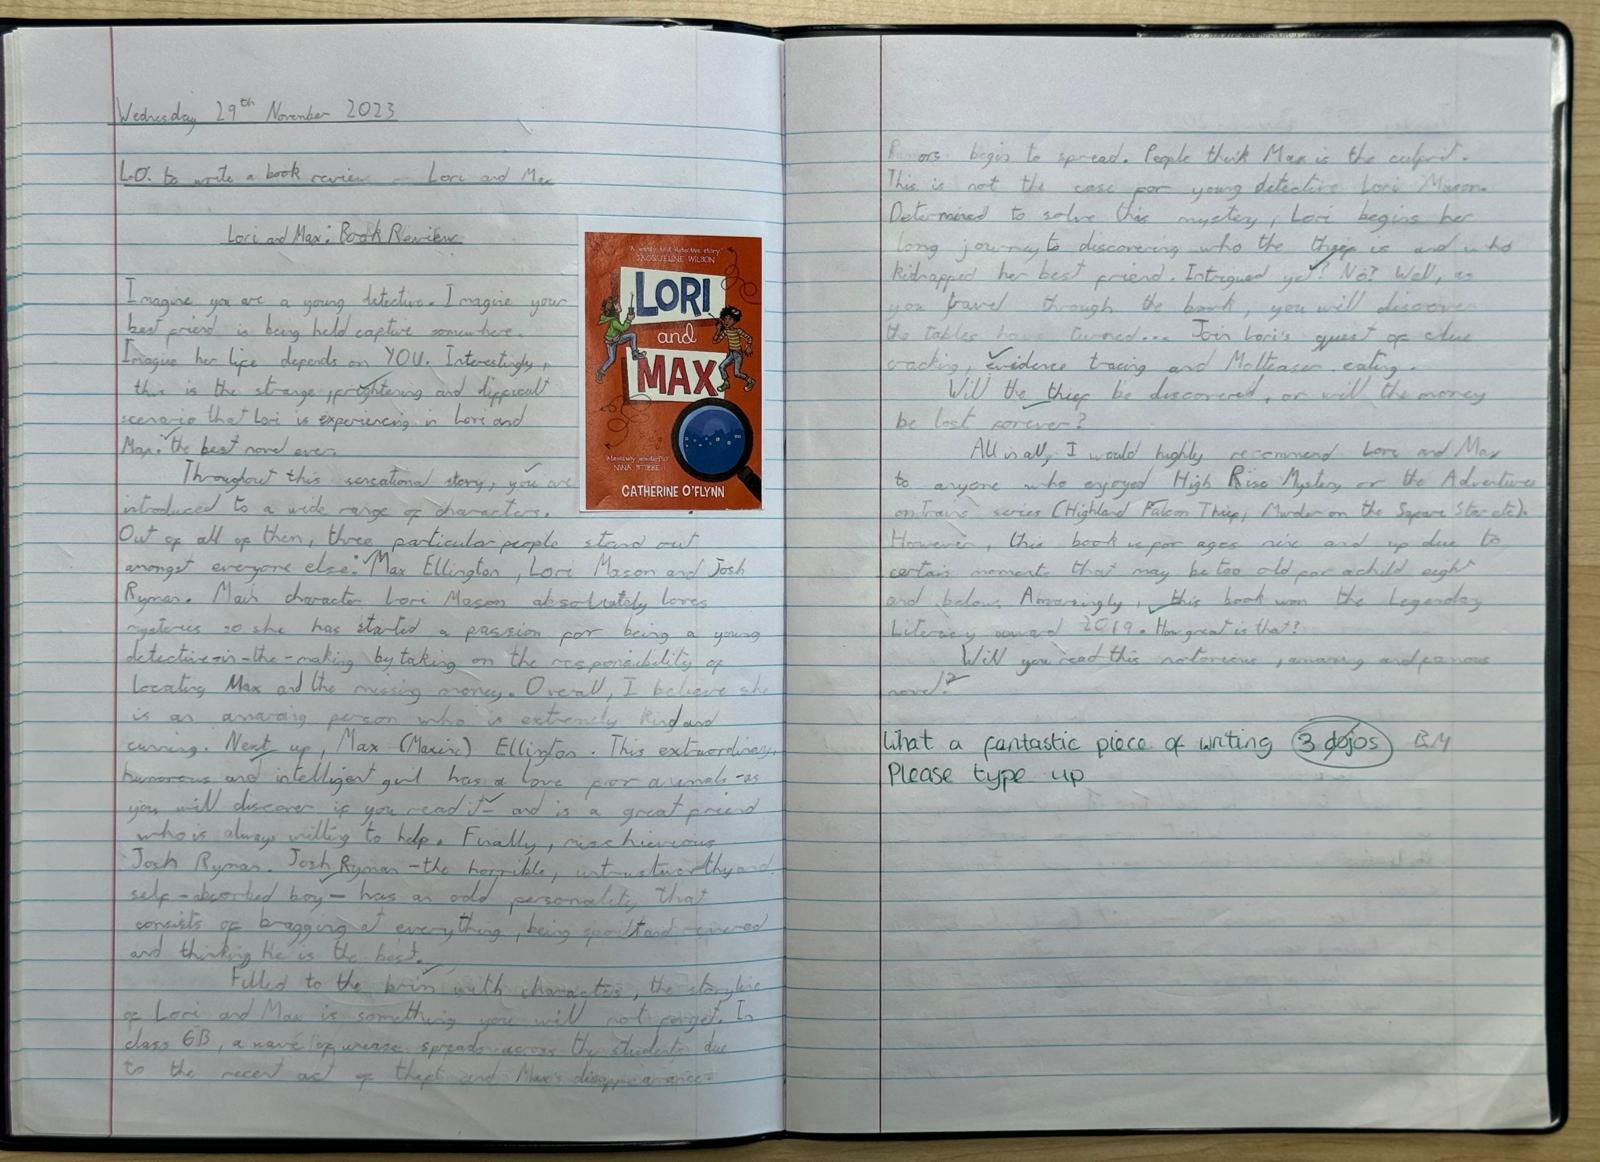 Wednesday 29th November 2023
L.O. to write a book review - Lori and Max
Lori and Max: Book Review
Imagine you are a young detective. Imagine your
best friend is being held captive somewhere.
Imagine her life depends on YOU. Interestingly,
this is the strange, frightening and difficult
scenario that Lori is experiencing in Lori and
Max: the best novel ever.
Throughout this sensational story, you are
introduced to a wide range of characters.
Out of all of them, three particular people stand out
amongst everyone else: Max Ellington, Lori Mason and Josh
Ryman. Main character Lori Mason absolutely loves
mysteries so she has started a passion for being a young
detective-in-the-making by taking on the responsibility of
locating Max and the missing money. Overall, I believe she
is an amazing person who is extremely kind and
cunning. Next up, Max (Maxine) Ellington. This extraordinary,
humorous and intelligent girl has a love for animals - as
you will discover if you read it - and is a great friend
who is always willing to help. Finally, mischievious
Josh Ryman. Josh Ryman - the horrible, untrustworthy and
self-absorbed boy - has an odd personality that
consists of bragging at everything, being spoilt and
and thinking He is the best.
Filled to the brim with characters, the storyline
of Lori and Max is something you will not forget. In
class 6B, a wave of unease spreads across the students due
to the recent act of theft and Max's disappearance.
"A warm and addictive story"
JACQUELINE WILSON
LORI
and
MAX
NINA STIBBE
CATHERINE O'FLYNN
Rumors begin to spread. People think Max is the culprit.
This is not the case for young detective Lori Mason.
Determined to solve this mystery, Lori begins her
long journey to discovering who the thief is and who
kidnapped her best friend. Intrigued yet? No? Well, as
you travel through the book, you will discover
the tables have turned... Join Lori's quest of clue
cracking, evidence tracing and Malteaser eating.
Will the thief be discovered, or will the money
be lost forever?
All in all, I would highly recommend Lori and Max
to anyone who enjoyed High Rise Mystery or the Adventures
on Trains series (Highland Falcon Thief, Murder on the Safari Star etc).
However, this book is for ages nine and up due to
certain moments that may be too old for a child eight
and below. Amazingly, this book won the Legendary
Literacy award 2019. How great is that?
Will you read this notorious, amazing and famous
novel?
What a fantastic piece of writing 3 dojos BM
Please type up